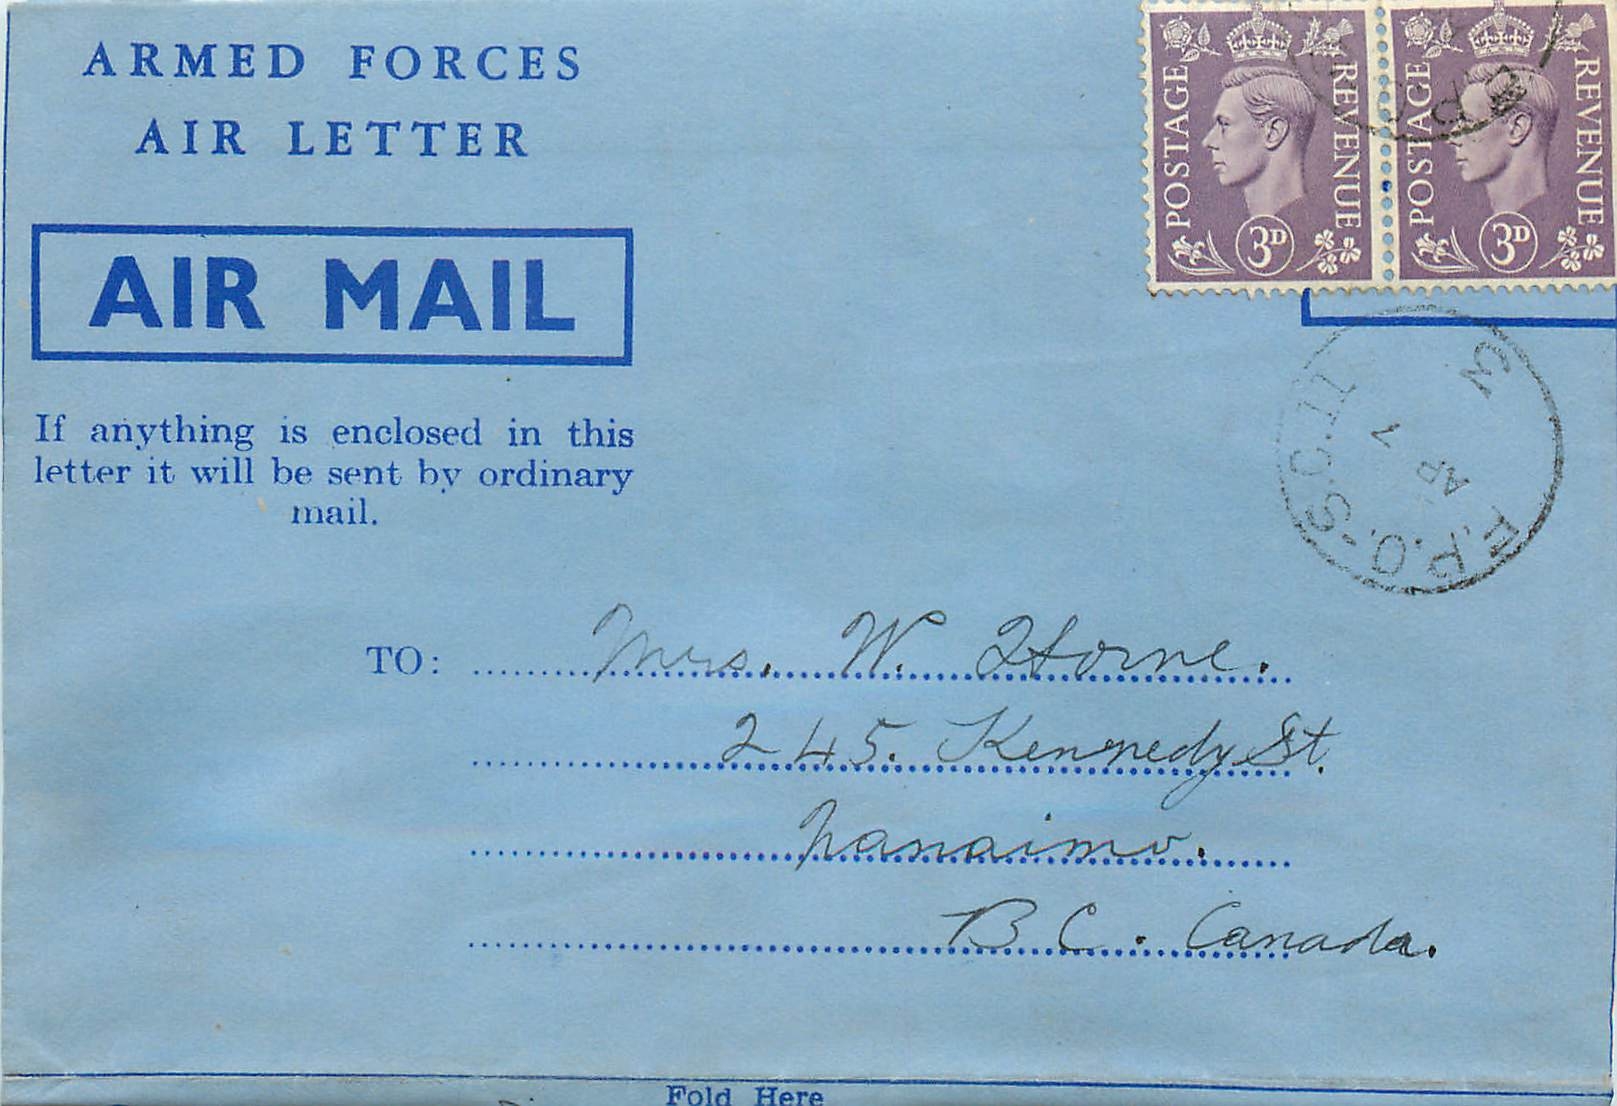 ARMED FORCES
AIR LETTER
AIR MAIL
If anything is enclosed in this
letter it will be sent by ordinary
mail.
POSTAGE REVENUE
3D
POSTAGE REVENUE
3D
F.P.O.-S.C.11
3
AP
TO: Mrs. W. Horne.
245. Kennedy St.
Nanaimo.
B C. Canada.
Fold Here